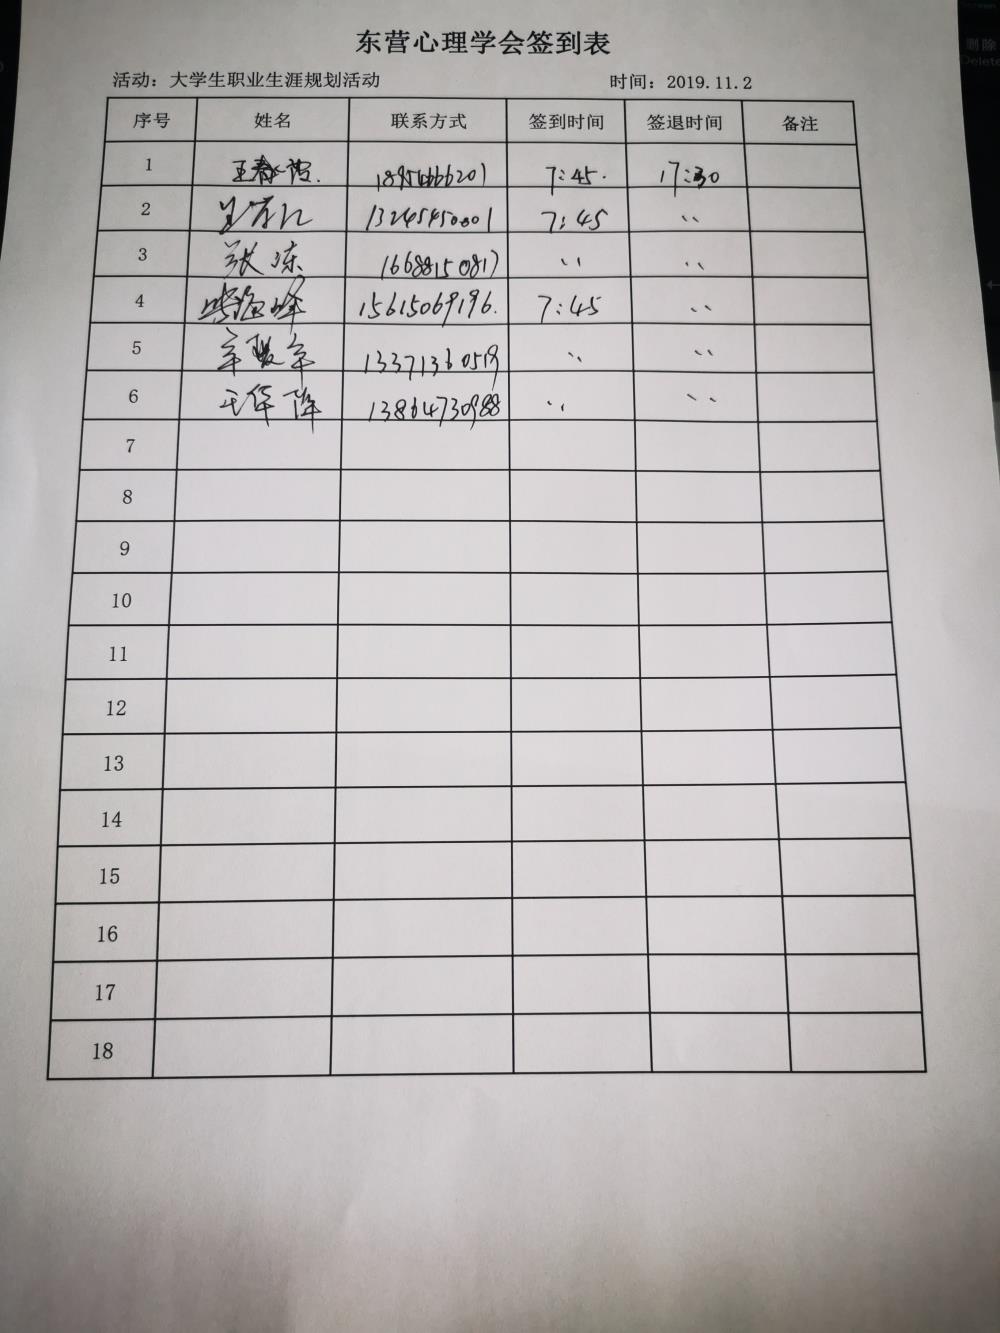 东营心理学会签到表
活动：大学生职业生涯规划活动 时间：2019.11.2
序号 姓名 联系方式 签到时间 签退时间 备注
1 7:45. 17:30
2 7:45 〃
3 张 16688150817 〃 〃
4 15615069196. 7:45 〃
5 13371360519 〃 〃
6 13864730988 〃 〃
7
8
9
10
11
12
13
14
15
16
17
18
删除
Delete